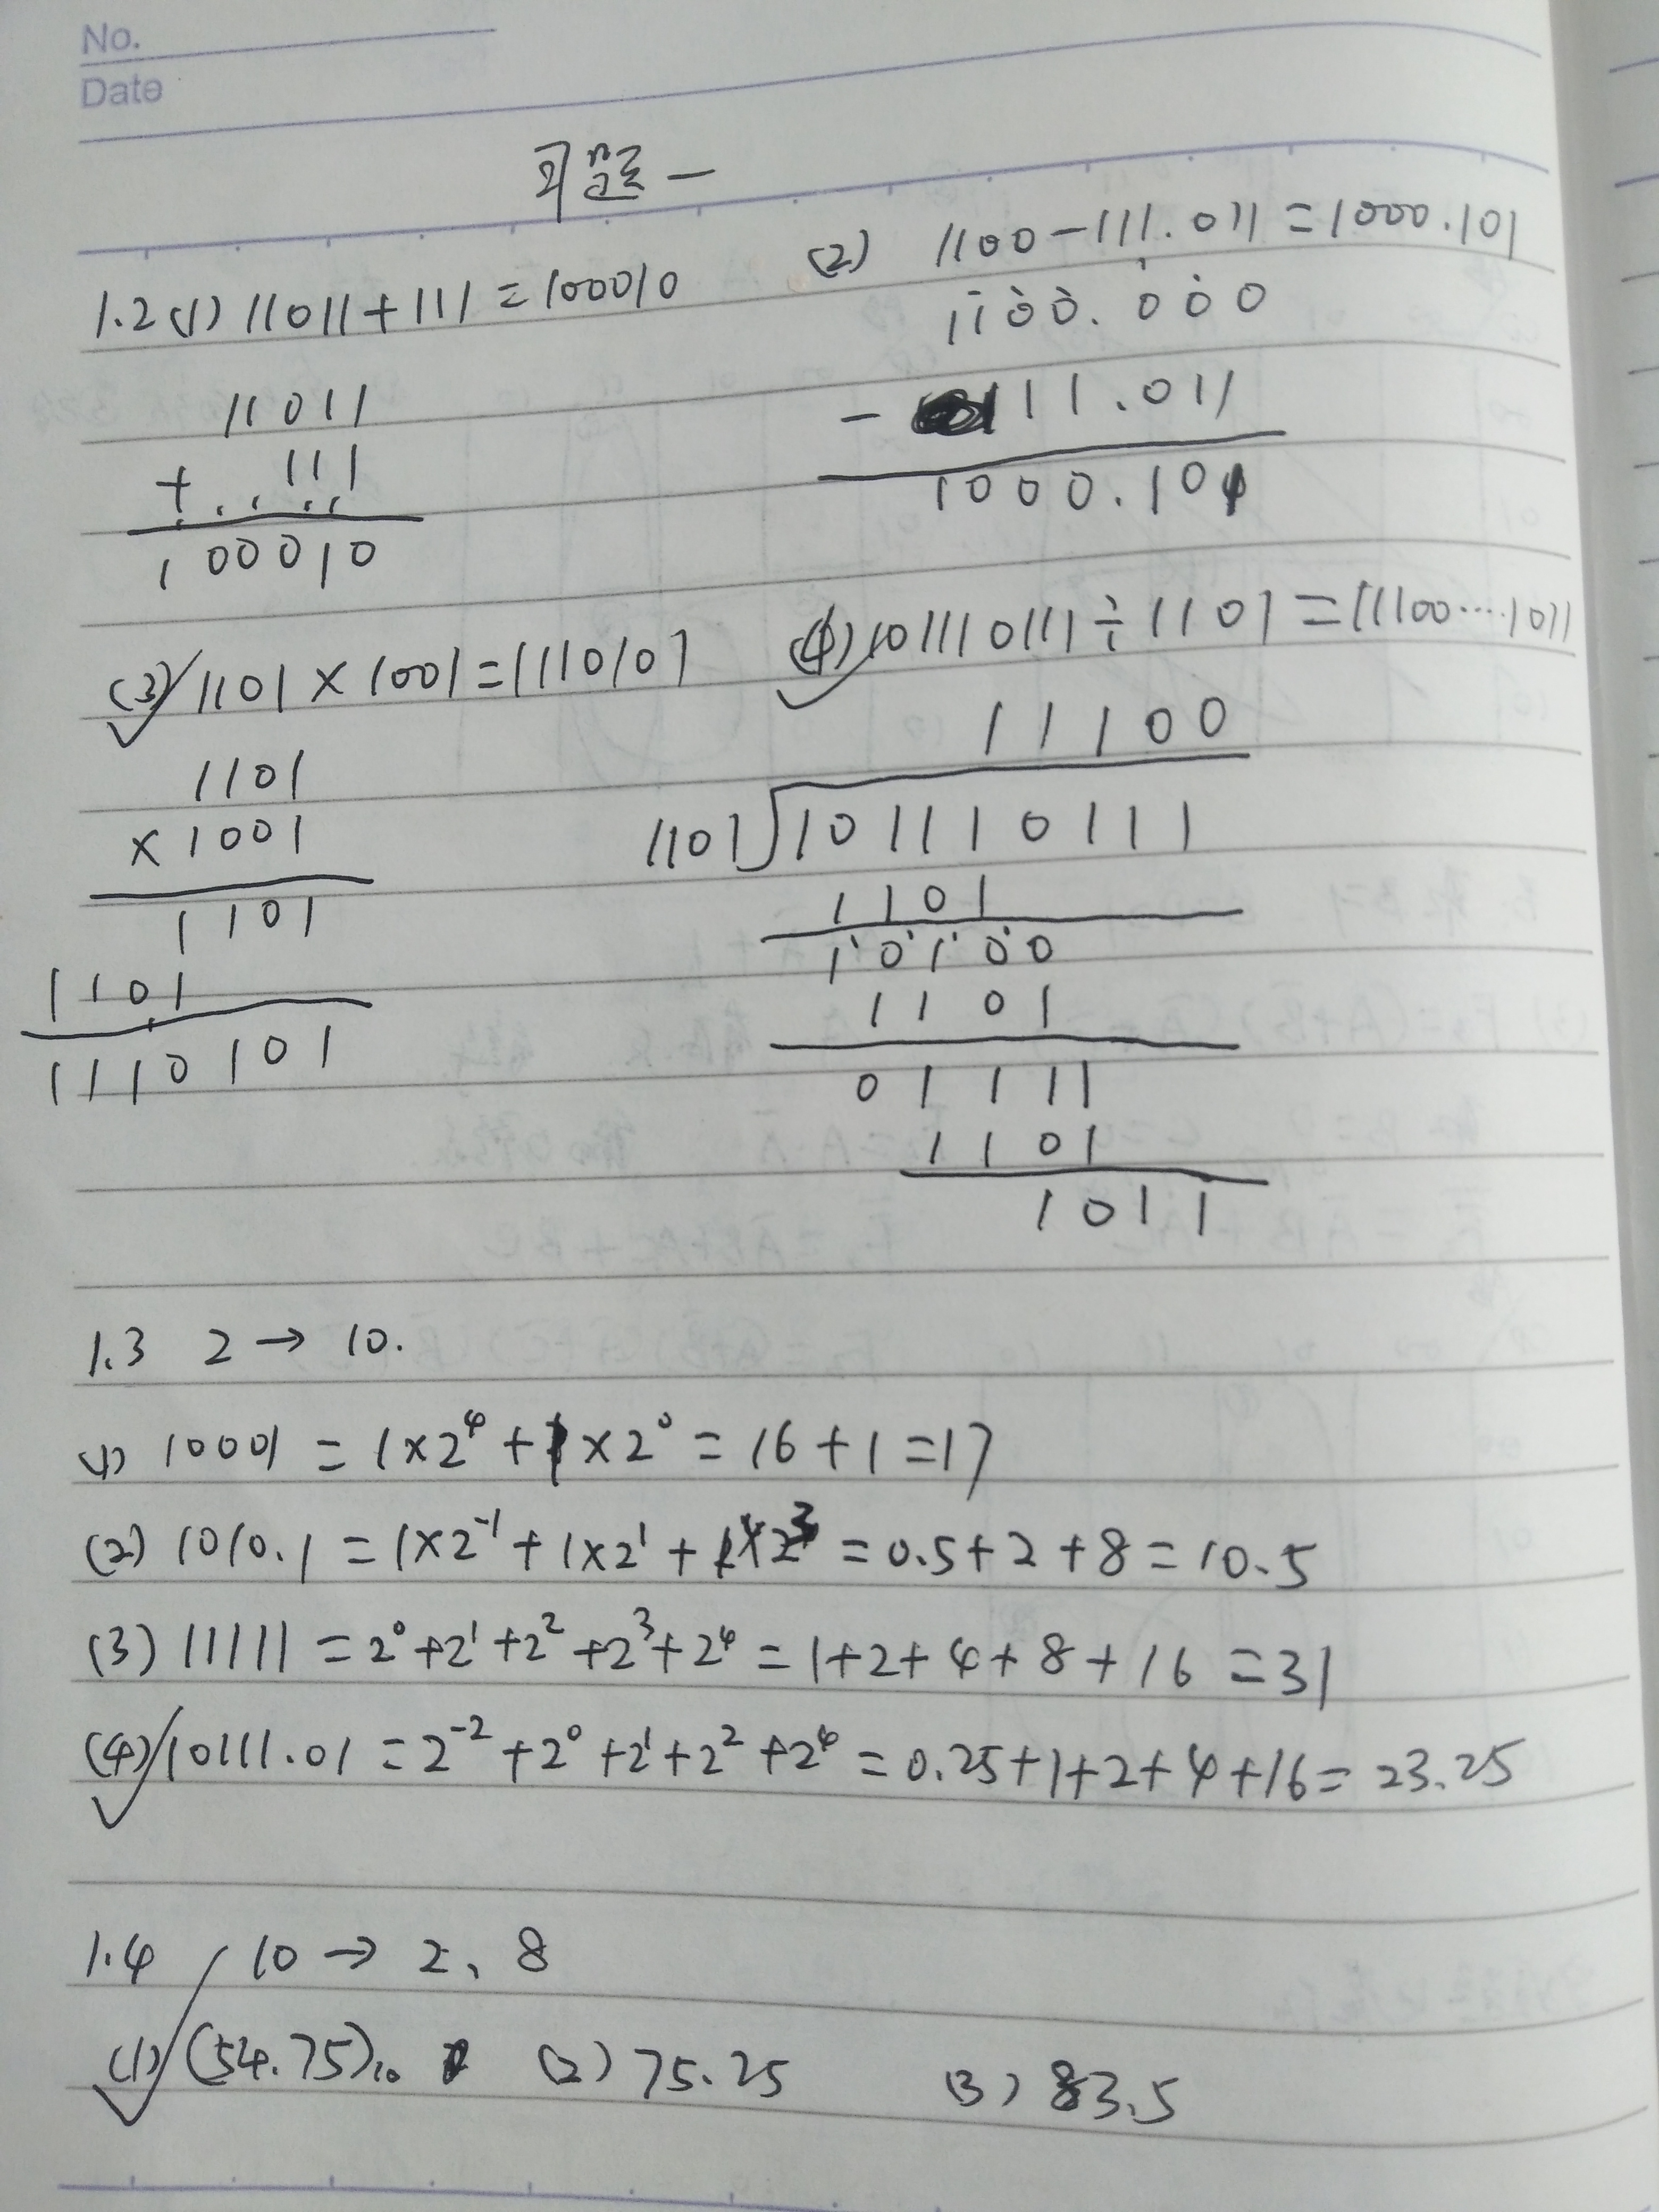 No.
Date
习题一
1.2 (1) 11011 + 111 = 100010
11011
+ 111
100010
(2) 1100 - 111.011 = 1000.101
1100.000
- 111.011
1000.101
(3) 1101 × 1001 = 1110101
1101
× 1001
1101
1101
1110101
(4) 101110111 ÷ 1101 = 11100····1011
11100
1101 101110111
1101
10100
1101
01111
1101
1011
1.3 2 → 10.
(1) 10001 = 1×2⁴ + 1×2⁰ = 16 + 1 = 17
(2) 1010.1 = 1×2⁻¹ + 1×2¹ + 1×2³ = 0.5 + 2 + 8 = 10.5
(3) 11111 = 2⁰ + 2¹ + 2² + 2³ + 2⁴ = 1 + 2 + 4 + 8 + 16 = 31
(4) 10111.01 = 2⁻² + 2⁰ + 2¹ + 2² + 2⁴ = 0.25 + 1 + 2 + 4 + 16 = 23.25
1.4 10 → 2、8
(1) (54.75)₁₀ (2) 75.25 (3) 83.5